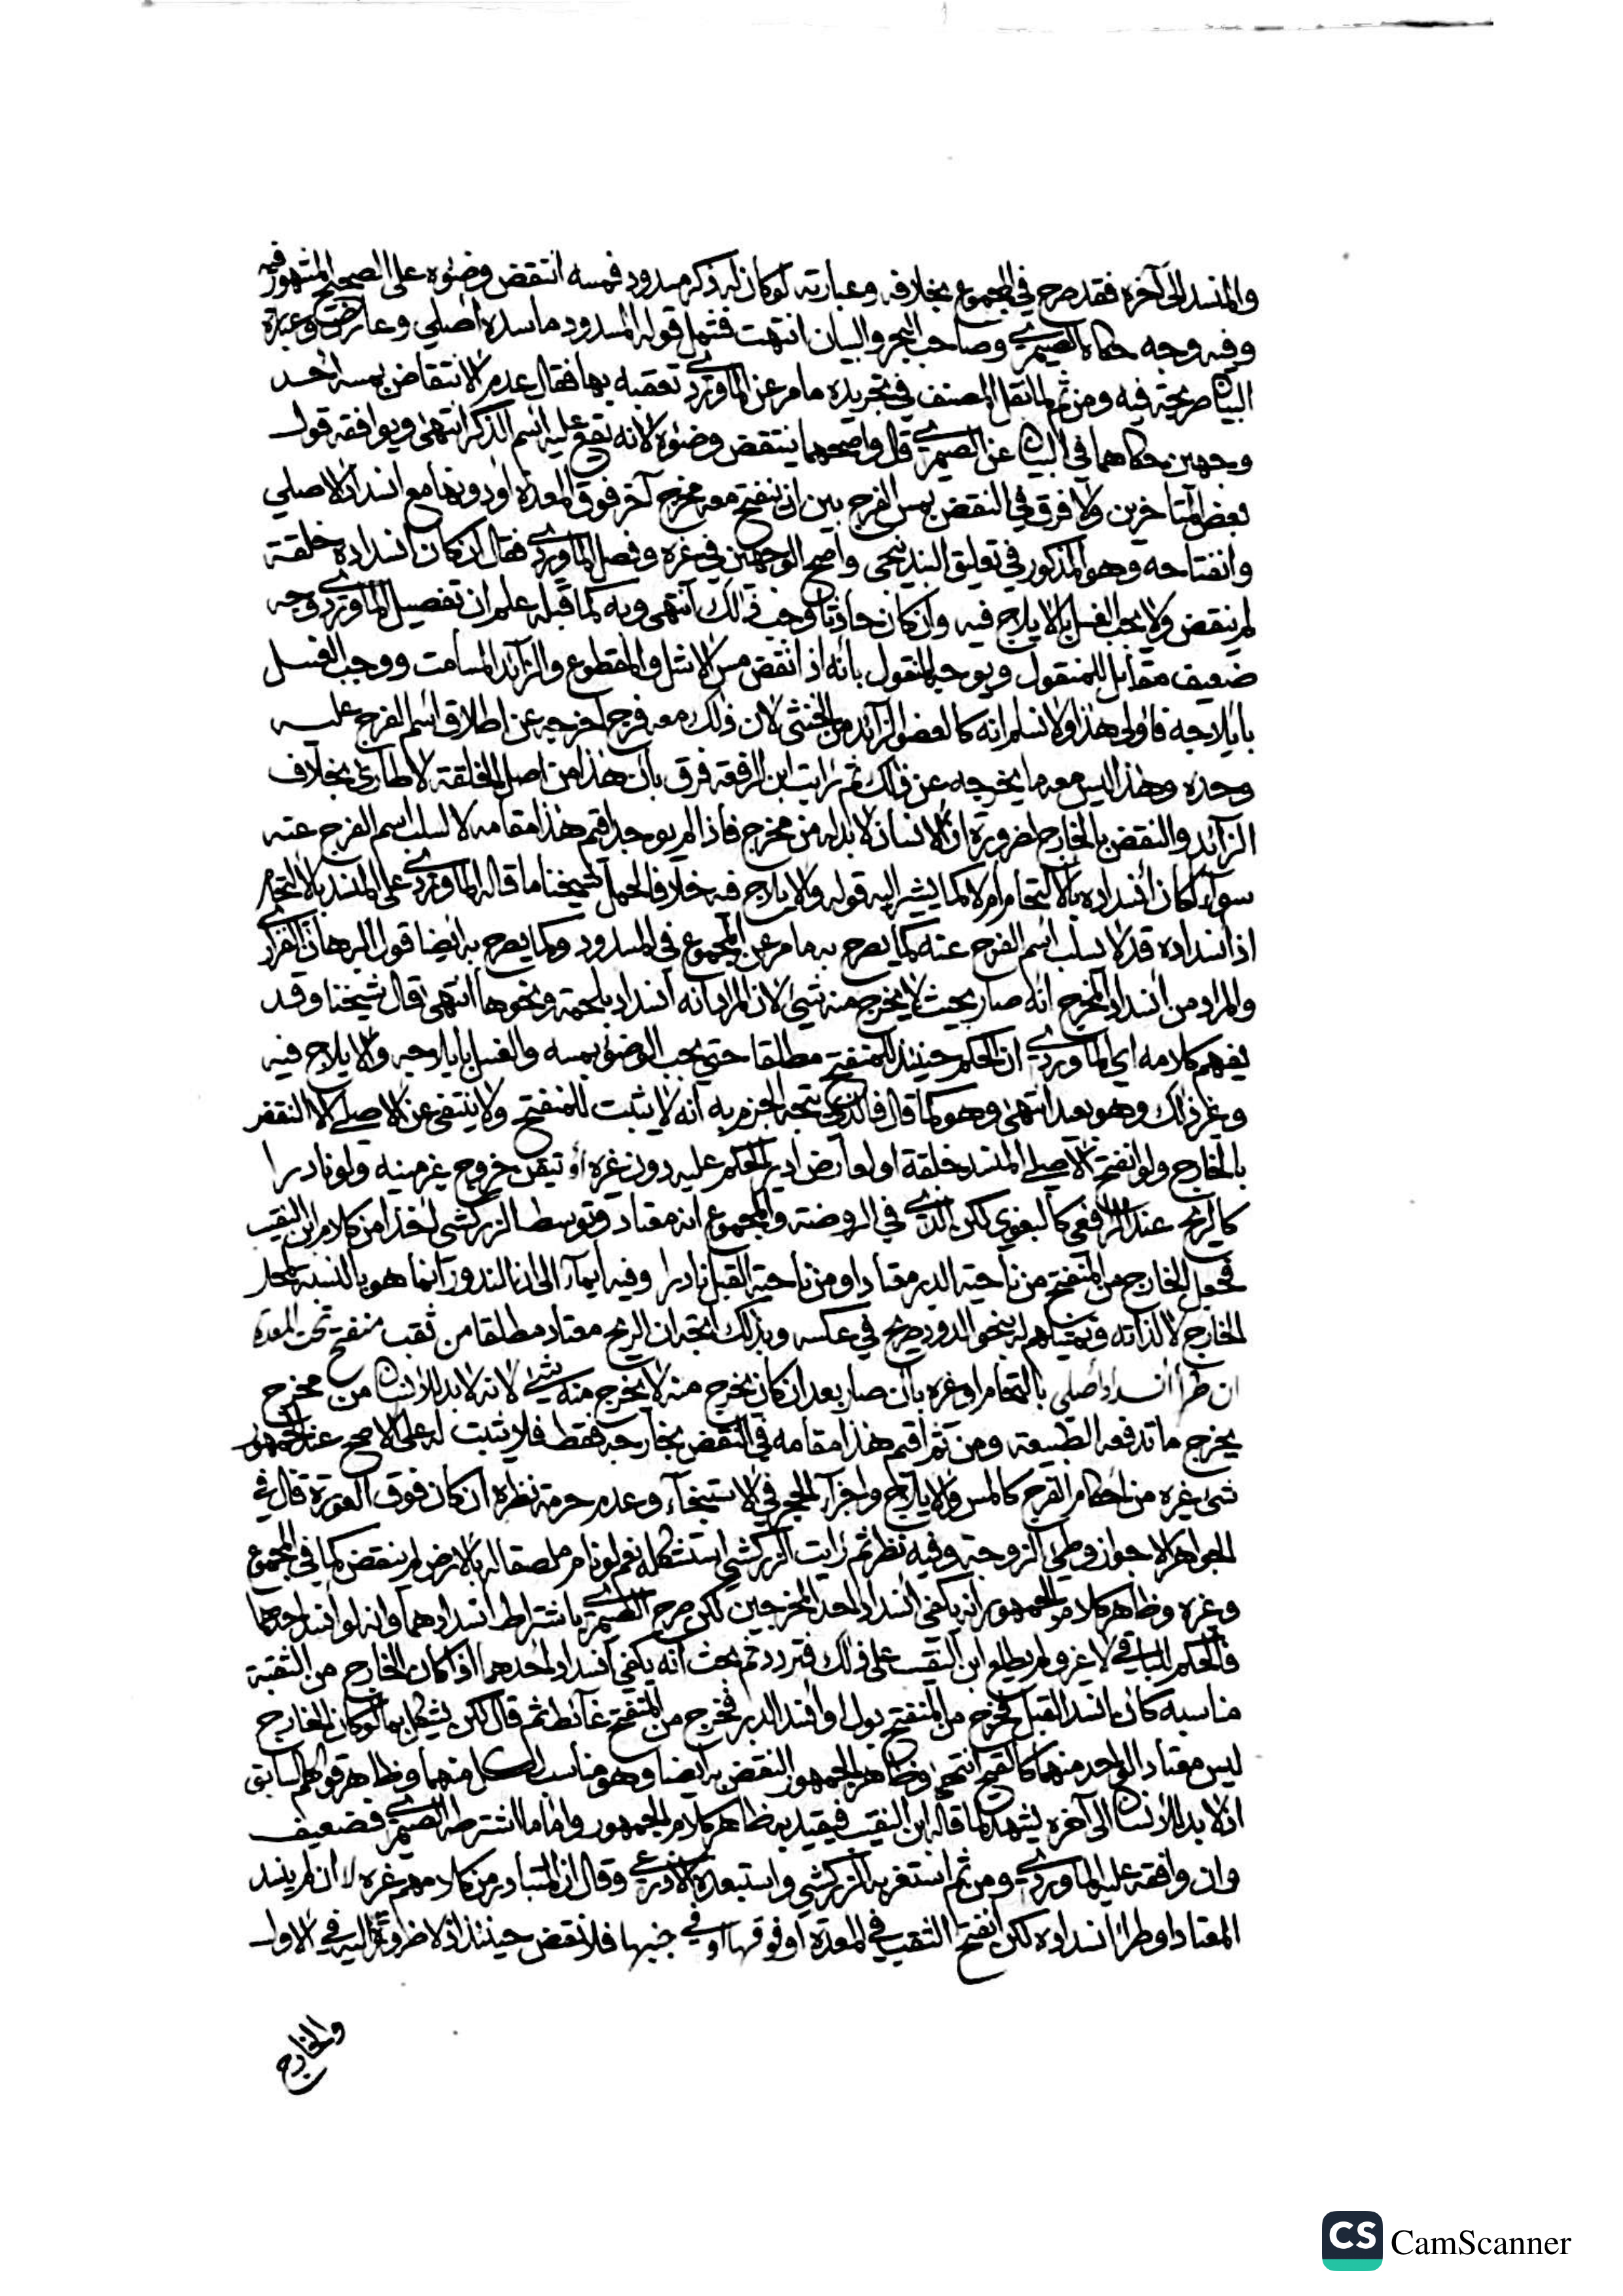 والمنسد إلى آخره فقد صرح في المجموع بخلافه وعبارته لو كان له ذكر مسدود فمسه انتقض وضوءه على الصحيح المشهور فيه
وفيه وجه حكاه الصيمري وصاحب البحر والبيان انتهت فشمل قوله المسدود ما سده أصلي وعارض وعبارة
البيان صريحة فيه ومن ثم لما نقل المصنف في تجريده ما مر عن الماوردي تعقبه بها فقال عدم الانتقاض بمسه أحد
وجهين حكاهما في البيان عن الصيمري قال وأصحهما ينتقض وضوءه لأنه يقع عليه اسم الذكر انتهى ويوافقه قول
بعض المتأخرين ولا فرق في النقض بمس الفرج بين أن ينفتح معه مخرج آخر فوق المعدة أو دونها مع انسداد الأصلي
وانفتاحه وهو المذكور في تعليق البندنيجي وأصح الوجهين في غيره وفصل الماوردي فقال إن كان انسداده خلقة
لم ينقض ولا يجب الغسل بالإيلاج فيه وإن كان حادثا وجب ذلك انتهى وبه كما قبله علم أن تفصيل الماوردي وجه
ضعيف مقابل للمنقول ويوجه المنقول بأنه إذا نقض مس الأشل والمقطوع والزائد المسامت ووجب الغسل
بإيلاجه فأولى هذا ولا نسلم أنه كالعضو الزائد من الخنثى لأن ذلك معه فرج آخر يخرجه عن إطلاق اسم الفرج عليه
وحده وهذا ليس معه ما يخرجه عن ذلك ثم رأيت ابن الرفعة فرق بأن هذا من أصل الخلقة لا طارئ بخلاف
الزائد والنقض بالخارج لضرورة أن الإنسان لا بد له من مخرج فإذا لم يوجد أقيم هذا مقامه لا لسلب اسم الفرج عنه
سواء كان انسداده بالالتحام أم لا كما يشير إليه قوله والإيلاج فيه خلافا لحمل شيخنا ما قاله الماوردي على المنسد بالالتحام
إذ انسداده قد لا يسلب اسم الفرج عنه كما يصرح به ما مر عن المجموع في المسدود وكما يصرح به أيضا قول البرهان الفزاري
والمراد من انسداد المخرج أنه صار بحيث لا يخرج منه شيء لأن المراد أنه انسداد بلحمة ونحوها انتهى قال شيخنا وقد
يفهم كلامه أي الماوردي أن الحكم حينئذ للمنفتح مطلقا حتى يجب الوضوء بمسه والغسل بإيلاجه والإيلاج فيه
وغير ذلك وهو بعيد انتهى وهو كما قال فالذي يتجه الجزم به أنه لا يثبت للمنفتح ولا ينتفي عن الأصلي إلا النقض
بالخارج ولو انفتح الأصلي المنسد خلقة أو لعارض أدير الحكم عليه دون غيره أو تيقن خروج غير منيه ولو نادرا
كالريح عند الرافعي كالبغوي لكن الذي في الروضة والمجموع أنه معتاد وتوسط الزركشي أخذا من كلام ابن النقيب
فجعل الخارج من المنفتح من ناحية الدبر معتادا ومن ناحية القبل نادرا وفيه إيماء إلى أن الندور إنما هو بالنسبة لمحل
الخارج لا لذاته وتمثيلهم له بنحو الدود صريح في عكسه وبذلك اتجه أن الريح معتاد مطلقا من ثقب منفتح تحت المعدة
إن طرأ انسداد أصلي بالتحام أو غيره بأن صار بعد أن كان يخرج منه لا يخرج منه شيء لأنه لا بد للإنسان من مخرج
يخرج ما تدفعه الطبيعة ومن ثم أقيم هذا مقامه في النقض بخارجه فقط فلا يثبت له على الأصح عند الجمهور
شيء غيره من أحكام الفرج كالمس والإيلاج وإجزاء الحجر في الاستنجاء وعدم حرمة نظره إن كان فوق العورة قال في
الجواهر لا جواز وطئ الزوجة وفيه نظر ثم رأيت الزركشي استشكله نعم لو نام ملصقا له بالأرض لم ينقض كما في المجموع
وغيره وظاهر كلام الجمهور أنه يكفي انسداد أحد المخرجين لكن صرح الصيمري باشتراط انسدادهما وأنه لو انسد أحدهما
فالحكم للباقي لا غير ولم يطلع ابن النقيب على ذلك فتردد ثم بحث أنه يكفي انسداد أحدهما إذا كان الخارج من الثقبة
مناسبه كأن انسد القبل فخرج من المنفتح بول أو انسد الدبر فخرج من المنفتح غائط ثم قال لكن يشكل بما لو كان الخارج
ليس معتاد الواحد منهما كالقيح انتهى وظاهر الجمهور النقض به أيضا وهو مناسب لكل منهما وظاهر قولهم السابق
إذ لا بد للإنسان إلى آخره يشهد لما قاله ابن النقيب فيقيد به ظاهر كلام الجمهور وأما ما اشترطه الصيمري فضعيف
وإن وافقه عليه الماوردي ومن ثم استغربه الزركشي واستبعده الأذرعي وقال إن المتبادر من كلامهم غيره لا إن لم ينسد
المعتاد أو طرأ انسداده لكن انفتح الثقب في المعدة أو فوقها أو في جنبها فلا نقض حينئذ إذ لا ضرورة إليه في الأول
والخارج
CS CamScanner